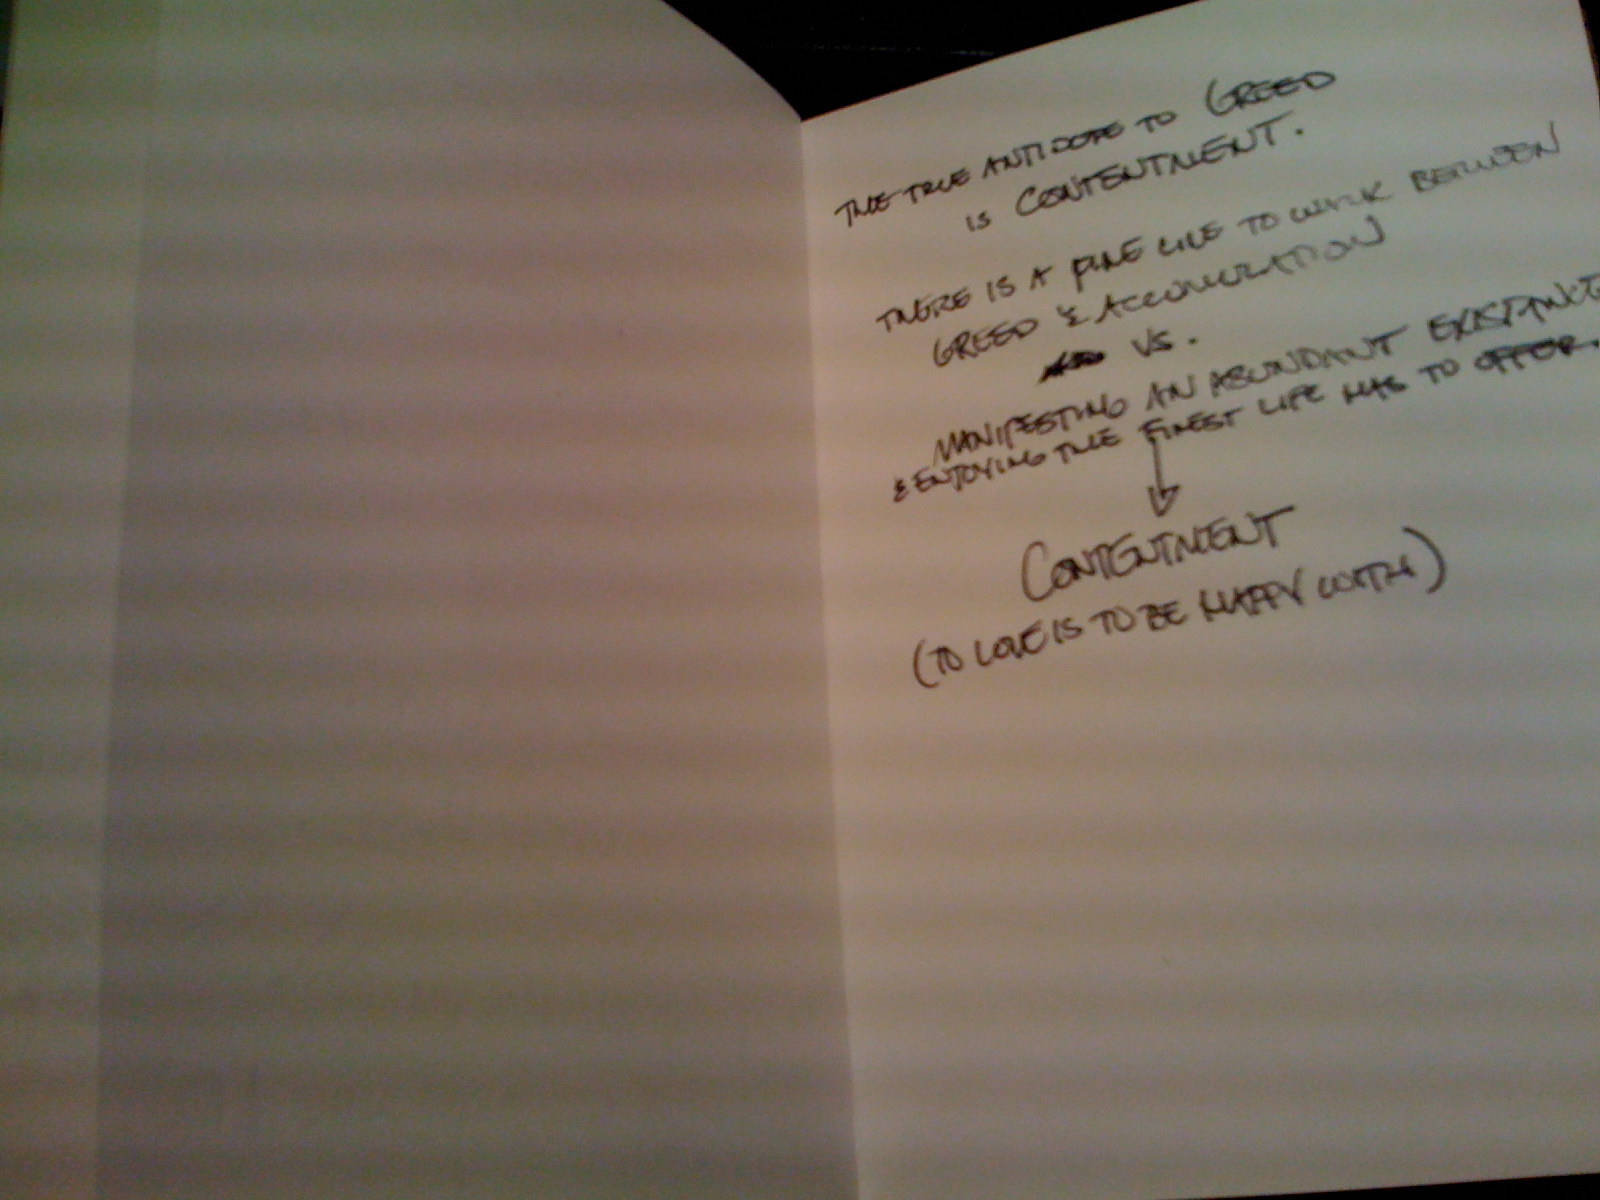 THE TRUE ANTIDOTE TO GREED
IS CONTENTMENT.
THERE IS A FINE LINE TO WALK BETWEEN
GREED & ACCUMULATION
VS.
MANIFESTING AN ABUNDANT EXISTANCE
& ENJOYING THE FINEST LIFE HAS TO OFFER.
CONTENTMENT
(TO LOVE IS TO BE HAPPY WITH)